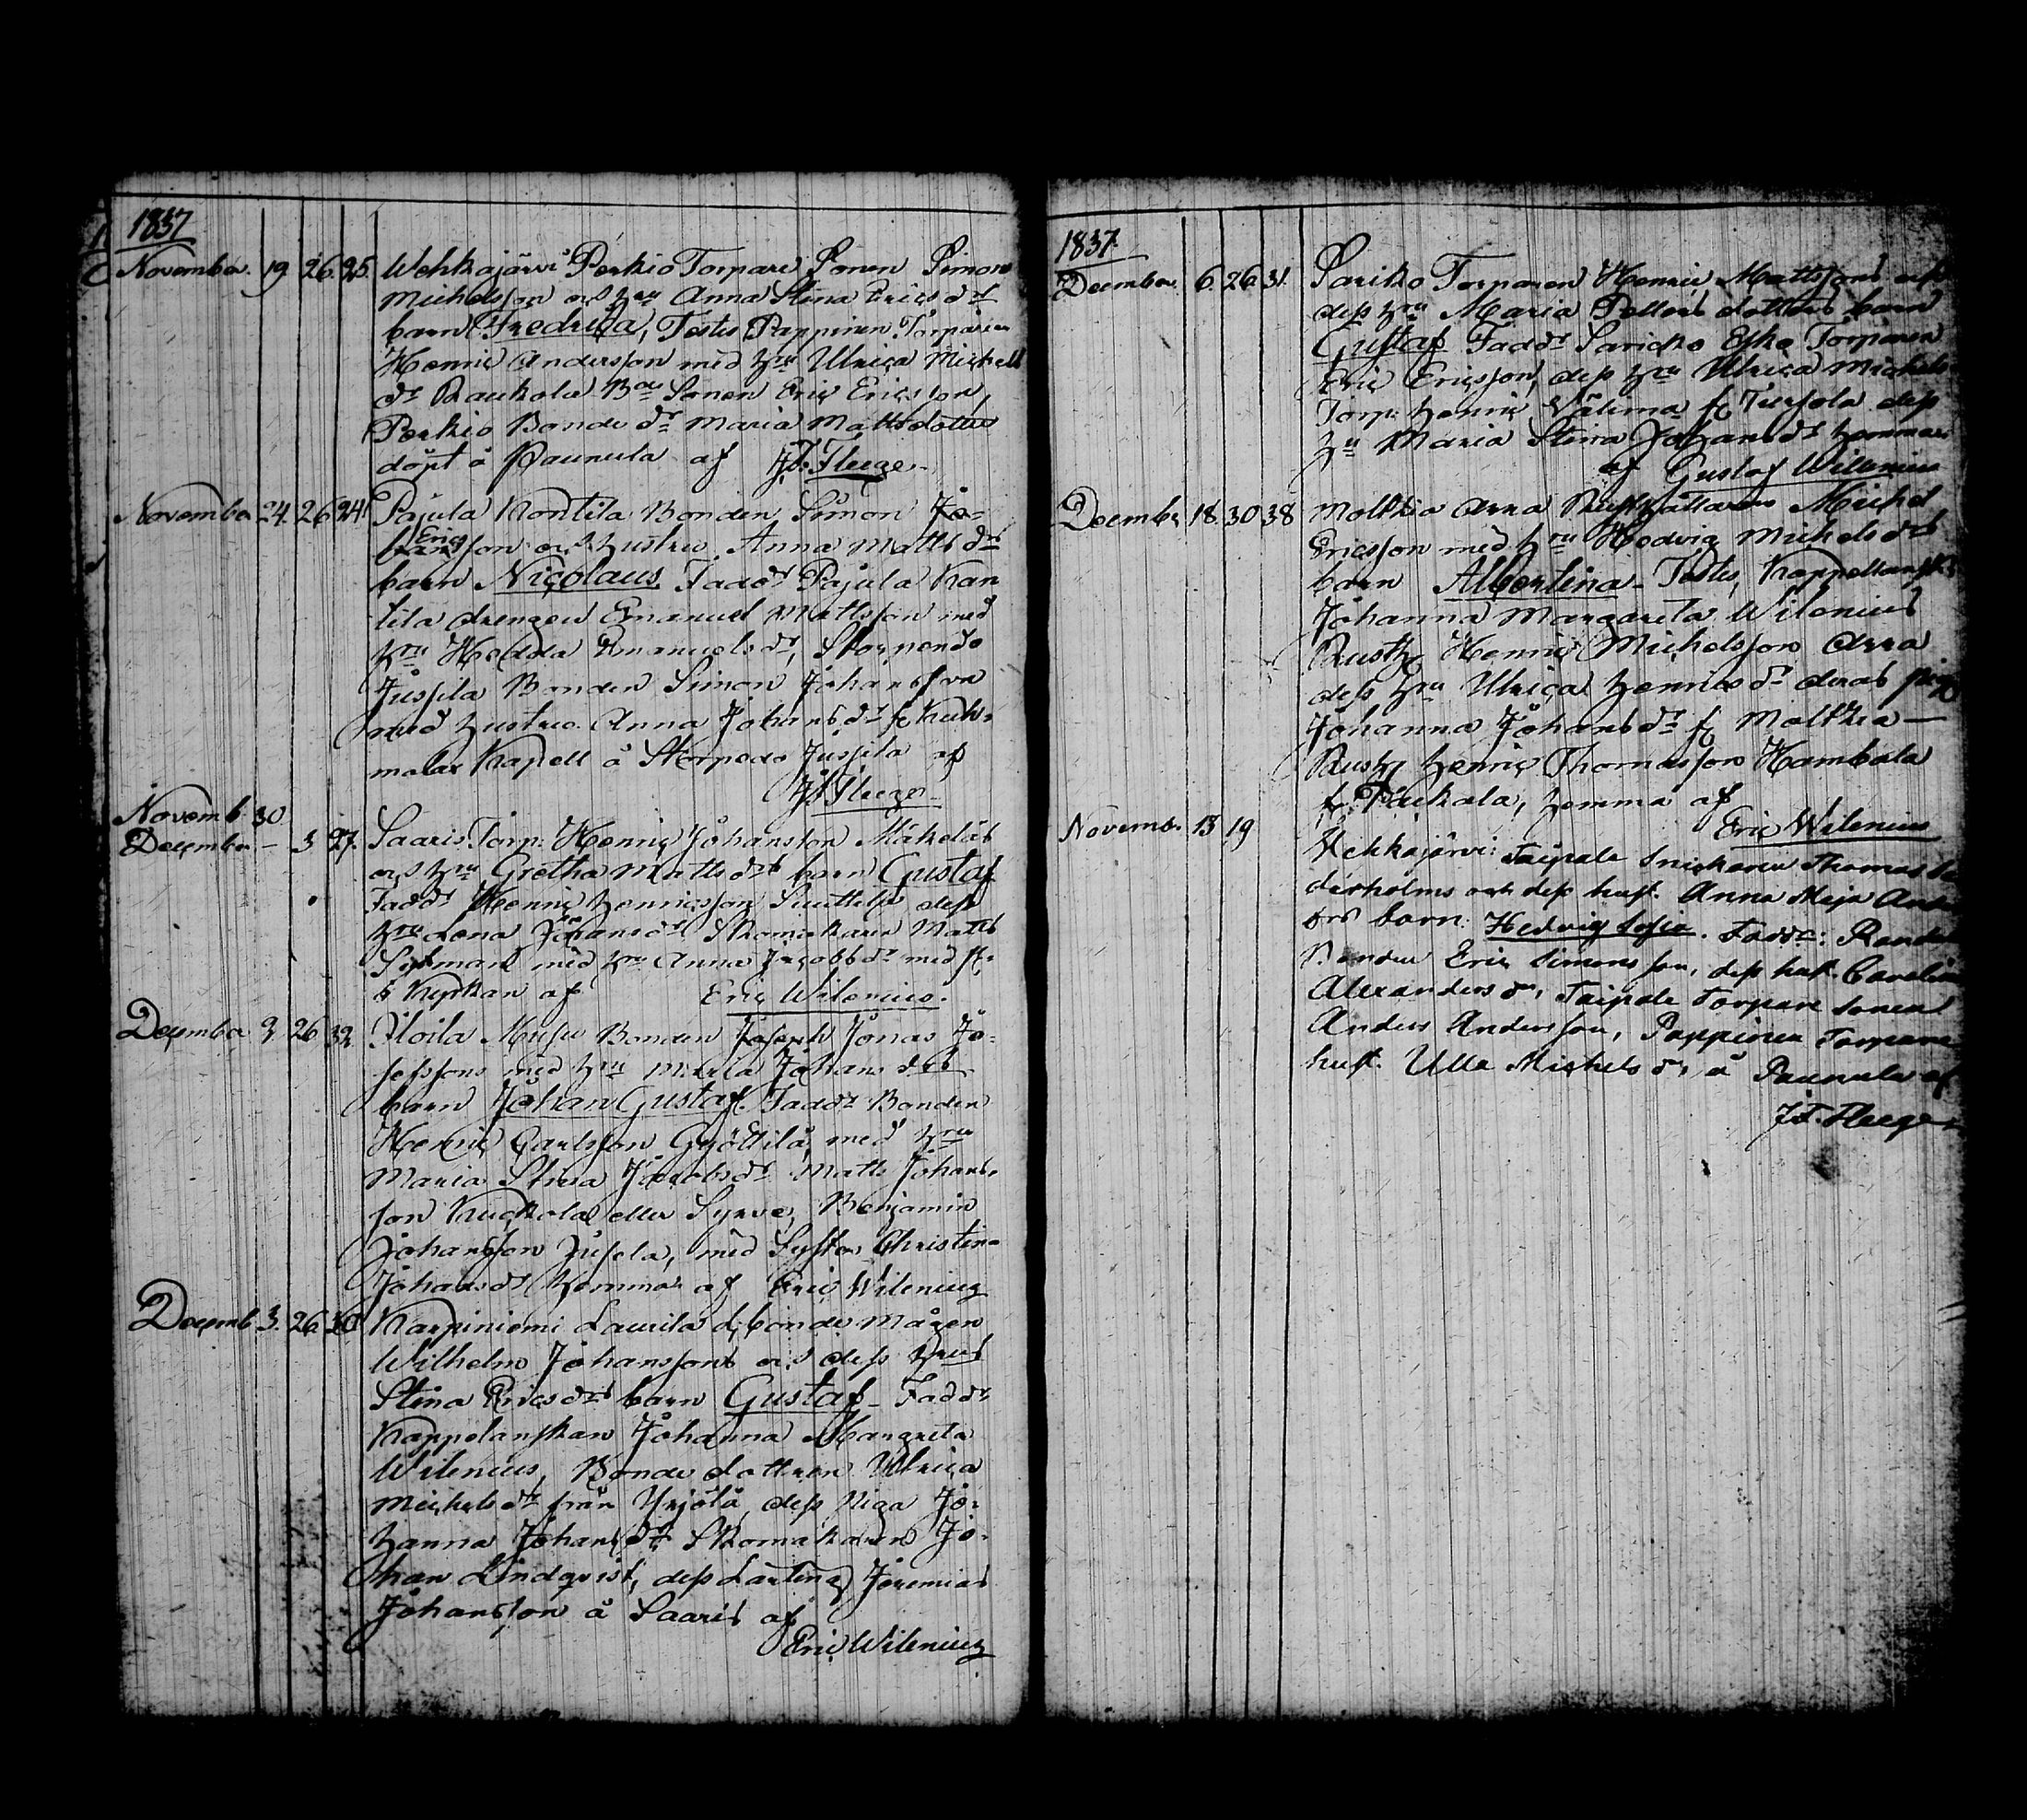 1837
November. 19 26. 25. Wehkajärvi Perkio Torpare Sonen Simon
Michelsson och hru Anna Stina Erics dr
barn Fredrica, Testes Pappinen Torparen
Henric Andersson med hru Ulrica Michels
dr Raukola Sonen Eric Ericsson,
Perkio Bonde dr Maria Matts dotter
döpt å Paunula af J.F. Fleege
November 24. 26 24. Pajula Kontila Bonden Simon Jo=
Eric
son och hustru Anna Matts drs
barn Nicolaus Faddr Pajula Kan
tila drengen Emanuel Mattsson med
hru Hedda Emanuels dr, Storpendo
Jussila Bonden Simon Johansson
med hustru Anna Johans dr fr Kuh=
malax Kapell å Jussila af
J.F. Fleege
Novemb 30
December - 3 27. Saaris Torp: Henric Johansson Mäkeläs
och hru Gretha Matts drs barn Gustaf
Faddr Henric Henricsson dess
hru Lena Johans dr Skomakaren Matts
med hru Anna Jacobs dr med fl:
å Kyrkan af Eric Wilenius.
December 3 26 32. Iloila Bonden Joseph Jonas Jo=
sefssons med hru Maria Johans drs
barn Johan Gustaf. Faddr Bonden
Henric Carlsson Gyöttilä, med hru
Maria Stina Jacobs dr Matts Johans=
son Kuckola eller Syrve, Benjamin
Johansson med Syster Christina
Johans dr hemma af Eric Wilenius
Decemb 3. 26. 30 Karpiniemi Laurila bonde mågen
Wilhelm Johanssons och dess hrus
Stina Erics drs barn Gustaf - Faddr
Kappelanskan Johanna Margreta
Wilenius, Bonde dottren Ulrica
Michels dr från Yrjölä, dess Piga Jo=
hanna Johans dr Skomakaren Jo=
han Lindqvist, dess Lärling Jeremias
Johansson å Saaris af
Eric Wilenius
1837.
December. 6. 26 31. Sariko Torparen Henric Mattssons och
dess hru Maria Petters dotters barn
Gustaf Faddr Saricko Esko Torparen
Eric Ericsson, dess hru Ulrica Michels
Torp: Henric Välima fr Tursola dess
hru Maria Stina Johans dr hemma
af Gustaf Wilenius
Decembr 18. 30 38 Moltkia Arra Rusthållaren Michel
Ericsson med hru Hedvig Michels drs
barn Albertina - Testes, Kappellansk:
Johanna Margareta Wilenius
Rusth Henric Michelsson Arra
dess hru Ulrica Henrics dr deras piga
Johanna Johans dr fr Moltkia -
Rusth Henric Thomasson Kambala
fr Taukala, hemma af
Eric Wilenius
Novemb. 13 19 Vehkajärvi: Taipale Snickaren Thomas
derholms och dess hust. Anna Maja
drs barn: Hedvig Sofia. Faddr:
Bonden Eric Simonsson, dess hust. Carolina
Alexanders dr, Taipale Torpare sonen
Anders Andersson, Pappinen Torpare
hust. Ulla Michels dr, å Paunula af
J.F. Fleege